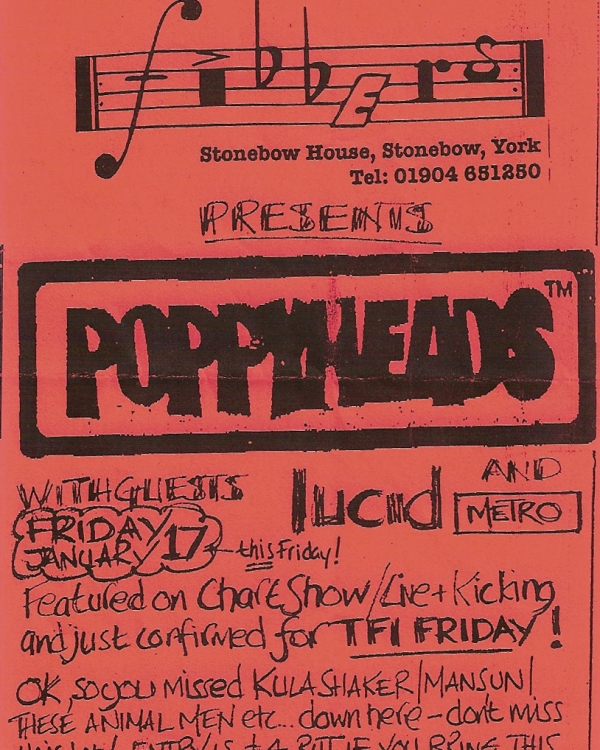 fibbers
Stonebow House, Stonebow, York
Tel: 01904 651250
PRESENTS
POPPYHEADS TM
WITH GUESTS lucid AND METRO
FRIDAY JANUARY 17 this Friday!
Featured on Chart Show/Live + Kicking
and just confirmed for TFI FRIDAY!
OK, so you missed KULA SHAKER/MANSUN/
THESE ANIMAL MEN etc... down here - don't miss
ENTRY IS IF YOU BRING THIS